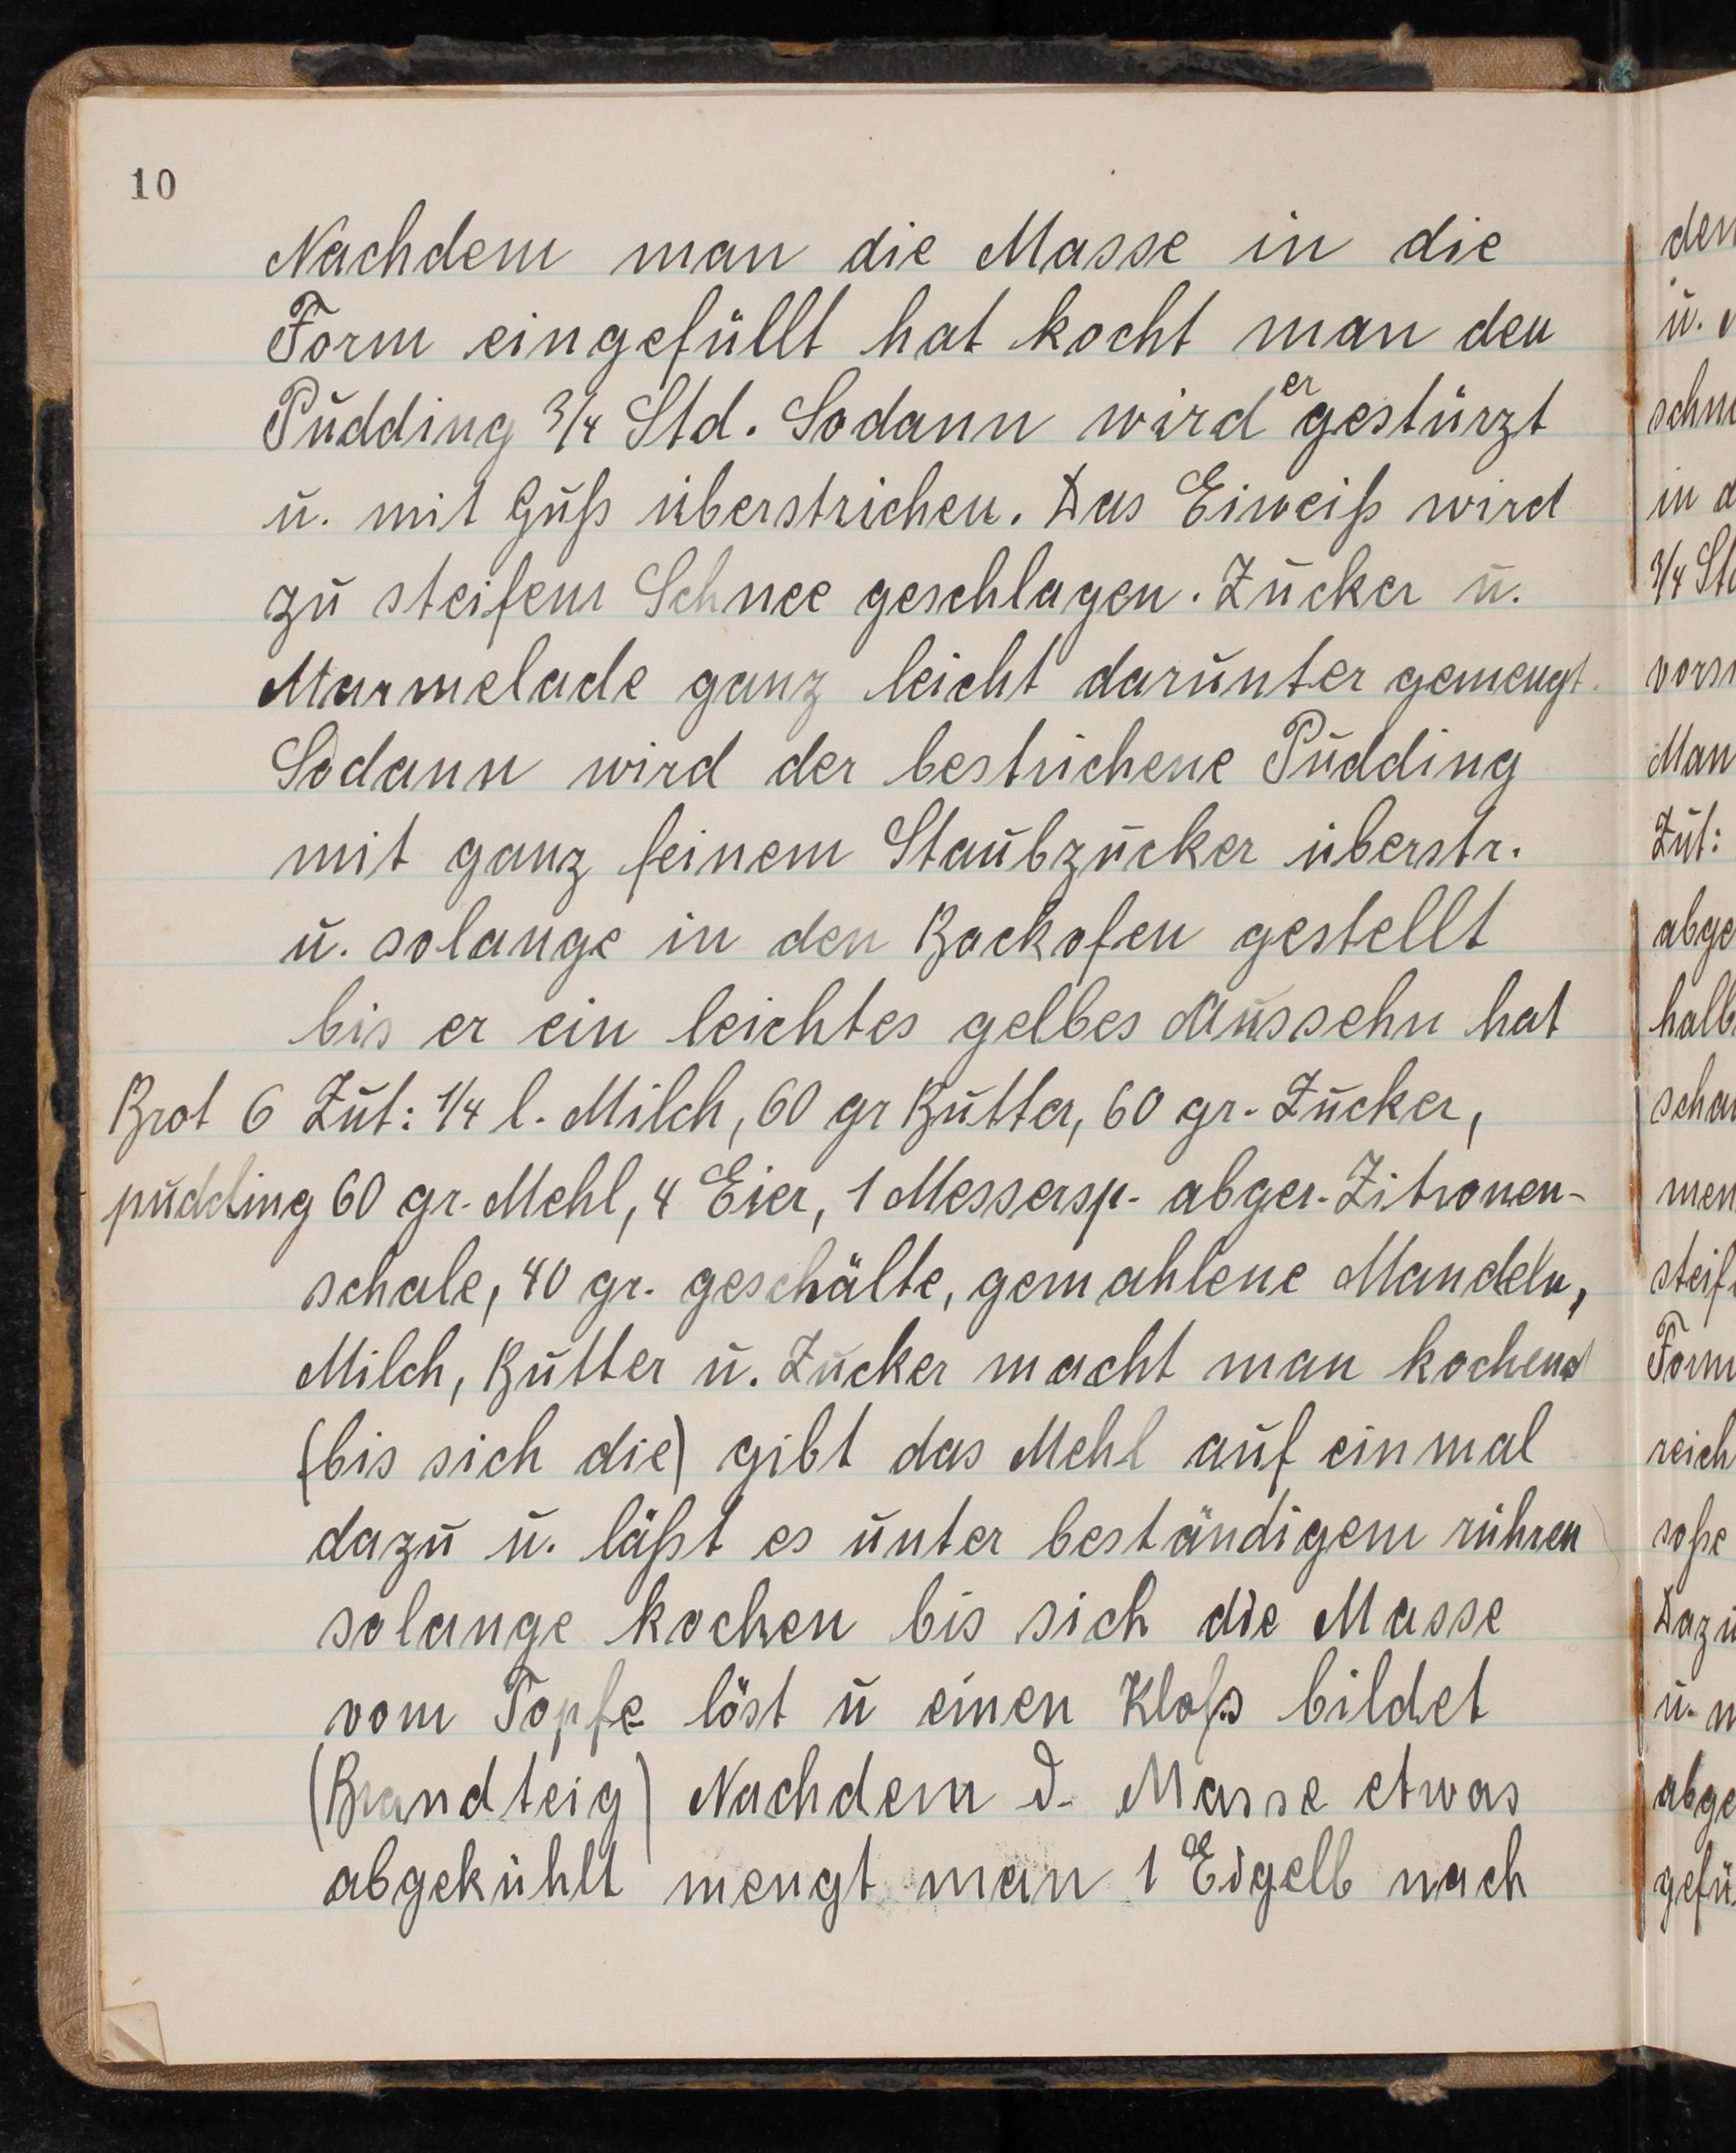 10
Nachdem man die Masse in die
Form eingefüllt hat kocht man den
Pudding 3/4 Std. Sodann wird er gestürzt
u. mit Guß überstrichen. Das Eiweiß wird
zu steifem Schnee geschlagen. Zucker u.
Marmelade ganz leicht darunter gemengt.
Sodann wird der bestrichene Pudding
mit ganz feinem Staubzucker überstr.
u. solange in den Backofen gestellt
bis er ein leichtes gelbes Aussehn hat
Brot 6 Zut: 1/4 l. Milch, 60 gr Butter, 60 gr. Zucker,
pudding 60 gr. Mehl, 4 Eier, 1 Messersp. abger. Zitronen-
schale, 40 gr. geschälte, gemahlene Mandeln,
Milch, Butter u. Zucker macht man kochend
(bis sich die) gibt das Mehl auf einmal
dazu u. läßt es unter beständigem rühren
solange kochen bis sich die Masse
vom Topfe löst u einen Kloß bildet
(Brandteig) Nachdem d. Masse etwas
abgekühlt mengt man 1 Eigelb nach
den
u.
schm
in d
3/4 Std
vors
Man
Zut:
abge
halb
scha
men
steif
Form
reich
soße
Dazu
u. m
abge
gefü